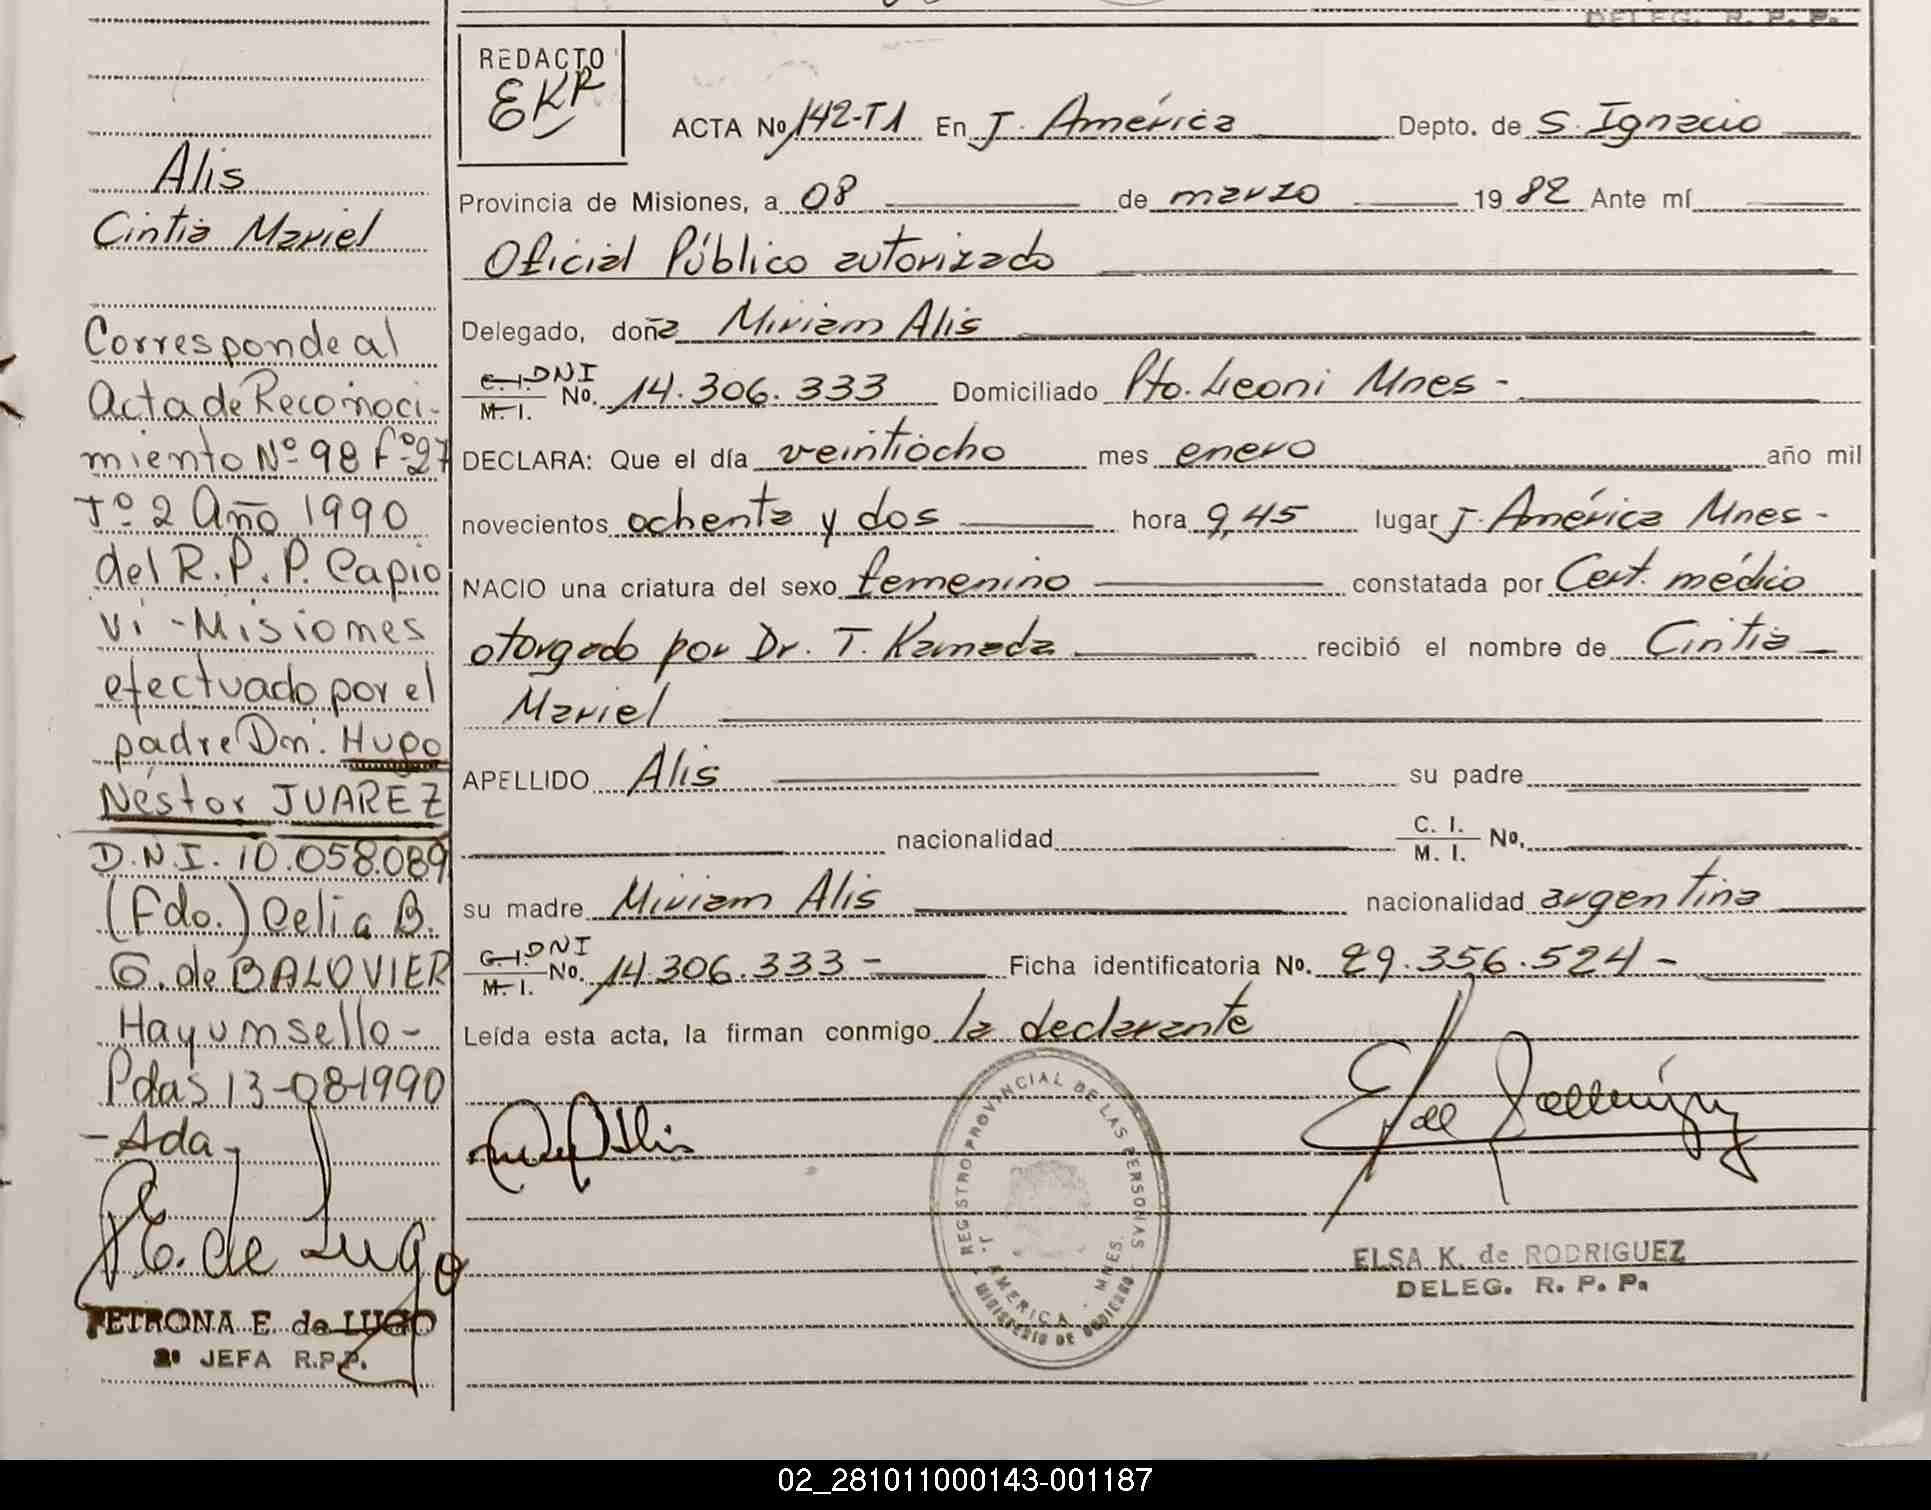 DELEG. R. P. P.
REDACTO
EKR
ACTA No 142-T1 En J. América Depto. de S. Ignacio
Provincia de Misiones, a 08 de marzo 1982 Ante mí
Oficial Público autorizado
Delegado, doña Miriam Alis
C. I. DNI
M. I. No. 14.306.333 Domiciliado Pto. Leoni Mnes -
DECLARA: Que el día veintiocho mes enero año mil
novecientos ochenta y dos hora 9,45 lugar J. América Mnes -
NACIO una criatura del sexo femenino constatada por Cert. médico
otorgado por Dr. T. Kameda recibió el nombre de Cintia
Mariel
APELLIDO Alis su padre
nacionalidad C. I. M. I. No.
su madre Miriam Alis nacionalidad argentina
C. I. DNI
M. I. No. 14.306.333 - Ficha identificatoria No. 29.356.524 -
Leída esta acta, la firman conmigo la declarante
REGISTRO PROVINCIAL DE LAS PERSONAS
J. AMERICA - MNES.
MINISTERIO DE GOBIERNO
ELSA K. de RODRIGUEZ
DELEG. R. P. P.
Alis
Cintia Mariel
Corresponde al
Acta de Reconoci-
miento Nº 98 Fº 27
Tº 2 Año 1990
del R.P.P. Capio
vi - Misiones
efectuado por el
padre Dn. Hugo
Néstor JUAREZ
D.N.I. 10.058.089
(Fdo.) Celia B.
G. de BALOVIER
Hay un sello -
Pdas 13-08-1990
- Ada -
P.E. de Lugo
PETRONA E. de LUGO
2º JEFA R.P.P.
02_281011000143-001187